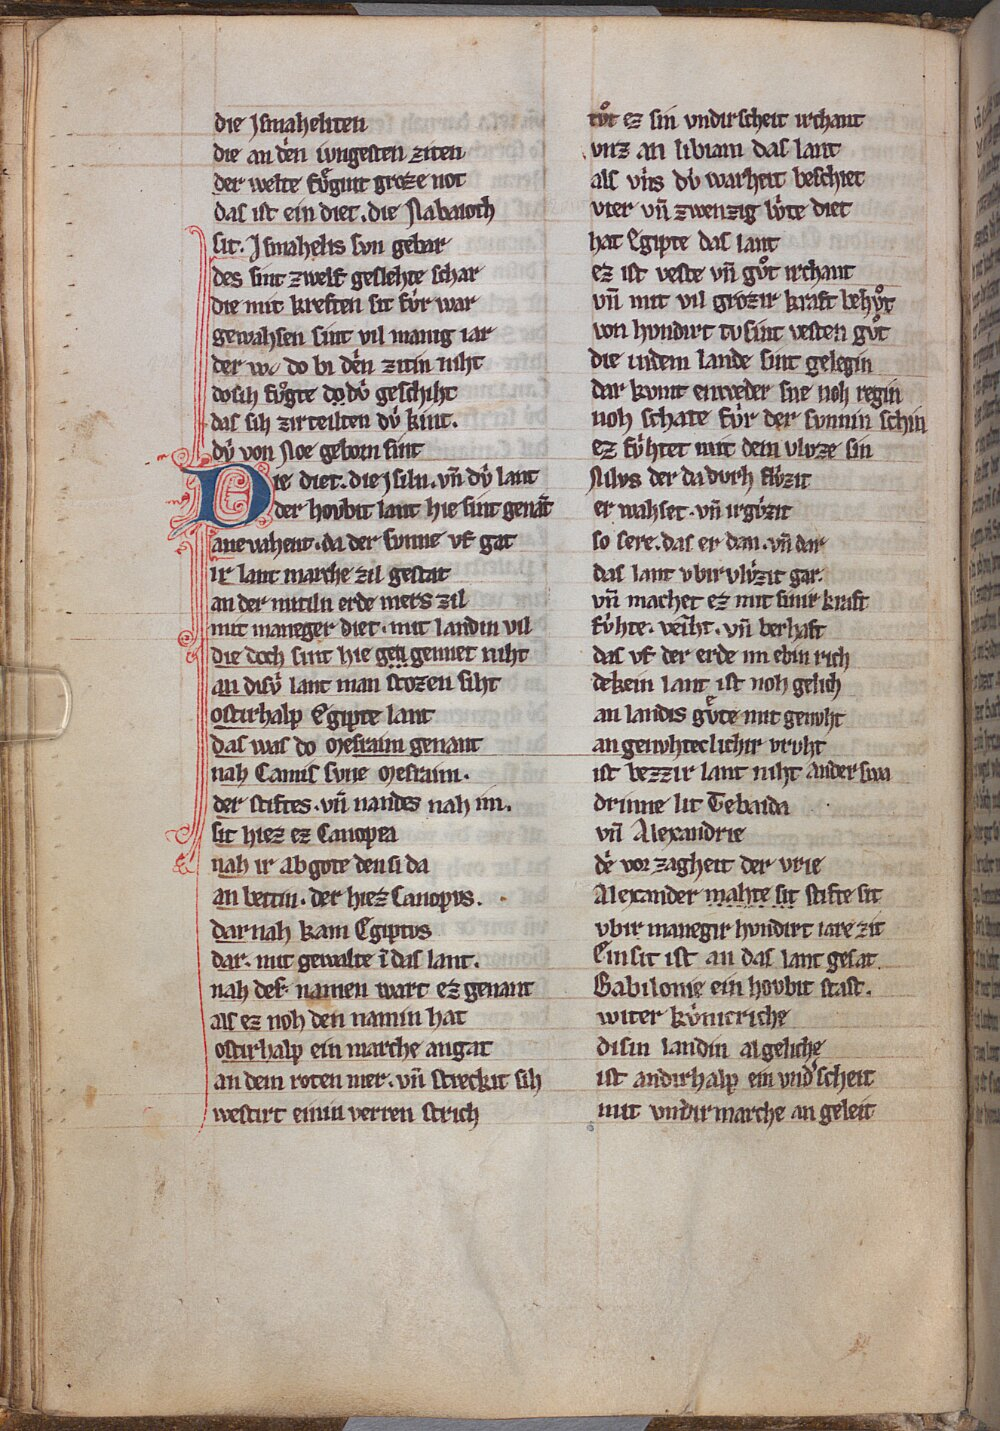 die Jsmaheliten
die an den iungesten ziten
der welte fv̊gint groze not
das ist ein diet. die Nabaioth
sit. Jsmahelis svn gebar
des sint zwelf geslehte schar
die mit kreften sit fv́r war
gewahsen sint vil manig iar
der do bi den zitin niht
do sih fv̊gte do dv́ geschiht
das sih zirteilten dv́ kint.
dv́ von Noe geborn sint
Die diet. die Jsiln. vn̄ dv́ lant
der hovbit lant hie sint genāt
ane vahent. da der svnne vf gat
ir lant marche zil gestat
an der mitiln erde mers zil
mit maneger diet. mit landin vil
die doch sint hie gen gennet niht
an disv́ lant man stozen siht
ostirhalp Egipte lant
das was do Mesraim genant
nah Camis svne Mesraim.
der stiftes. vn̄ nandes nah im.
sit hiez ez Canopea
nah ir abgote den si da
an bettin. der hiez Canopvs.
dar nah kam Egiptvs
dar. mit gewalte ī das lant.
nah des namen wart ez genant
als ez noh den namin hat
ostirhalp ein marche angat
an dem roten mer. vn̄ streckit sih
westirt einin verren strich
tv̊t ez sin vndirscheit irchant
vnz an libiam das lant
als vns dv́ warheit beschiet
vier vn̄ zwenzig lv́te diet
hat Egipte das lant
ez ist veste vn̄ gv̊t irchant
vn̄ mit vil grozir kraft behv̊t
von hvndirt tvsint vesten gv̊t
die indem lande sint gelegin
dar kvmt enweder sne noh regin
noh schate fv́r der svnnin schin
ez fv́htet mit dem vlvze sin
Nilvs der da dvrh flv́zit
er wahset. vn̄ irgv́zit
so sere. das er dan. vn̄ dar
das lant vbir vlv́zit gar.
vn̄ machet ez mit sinir kraft
fv́hte. veiht. vn̄ berhaft
das vf der erde im ebin rich
dekein lant ist noh gelich
an landis gv̊te mit genvht
an genvhteclichir vrvht
ist bezzir lant niht ander swa
drinne lit Tebaida
vn̄ Alexandrie
de vor zagheit der vrie
Alexander mahte sit stifte sit
vbir manegir hvndirt iare zit
Ein sit ist an das lant gesat
Babilonie ein hovbit stast.
witer kv́nicriche
disin landin al geliche
ist andirhalp ein vndscheit
mit vndir marche an geleit